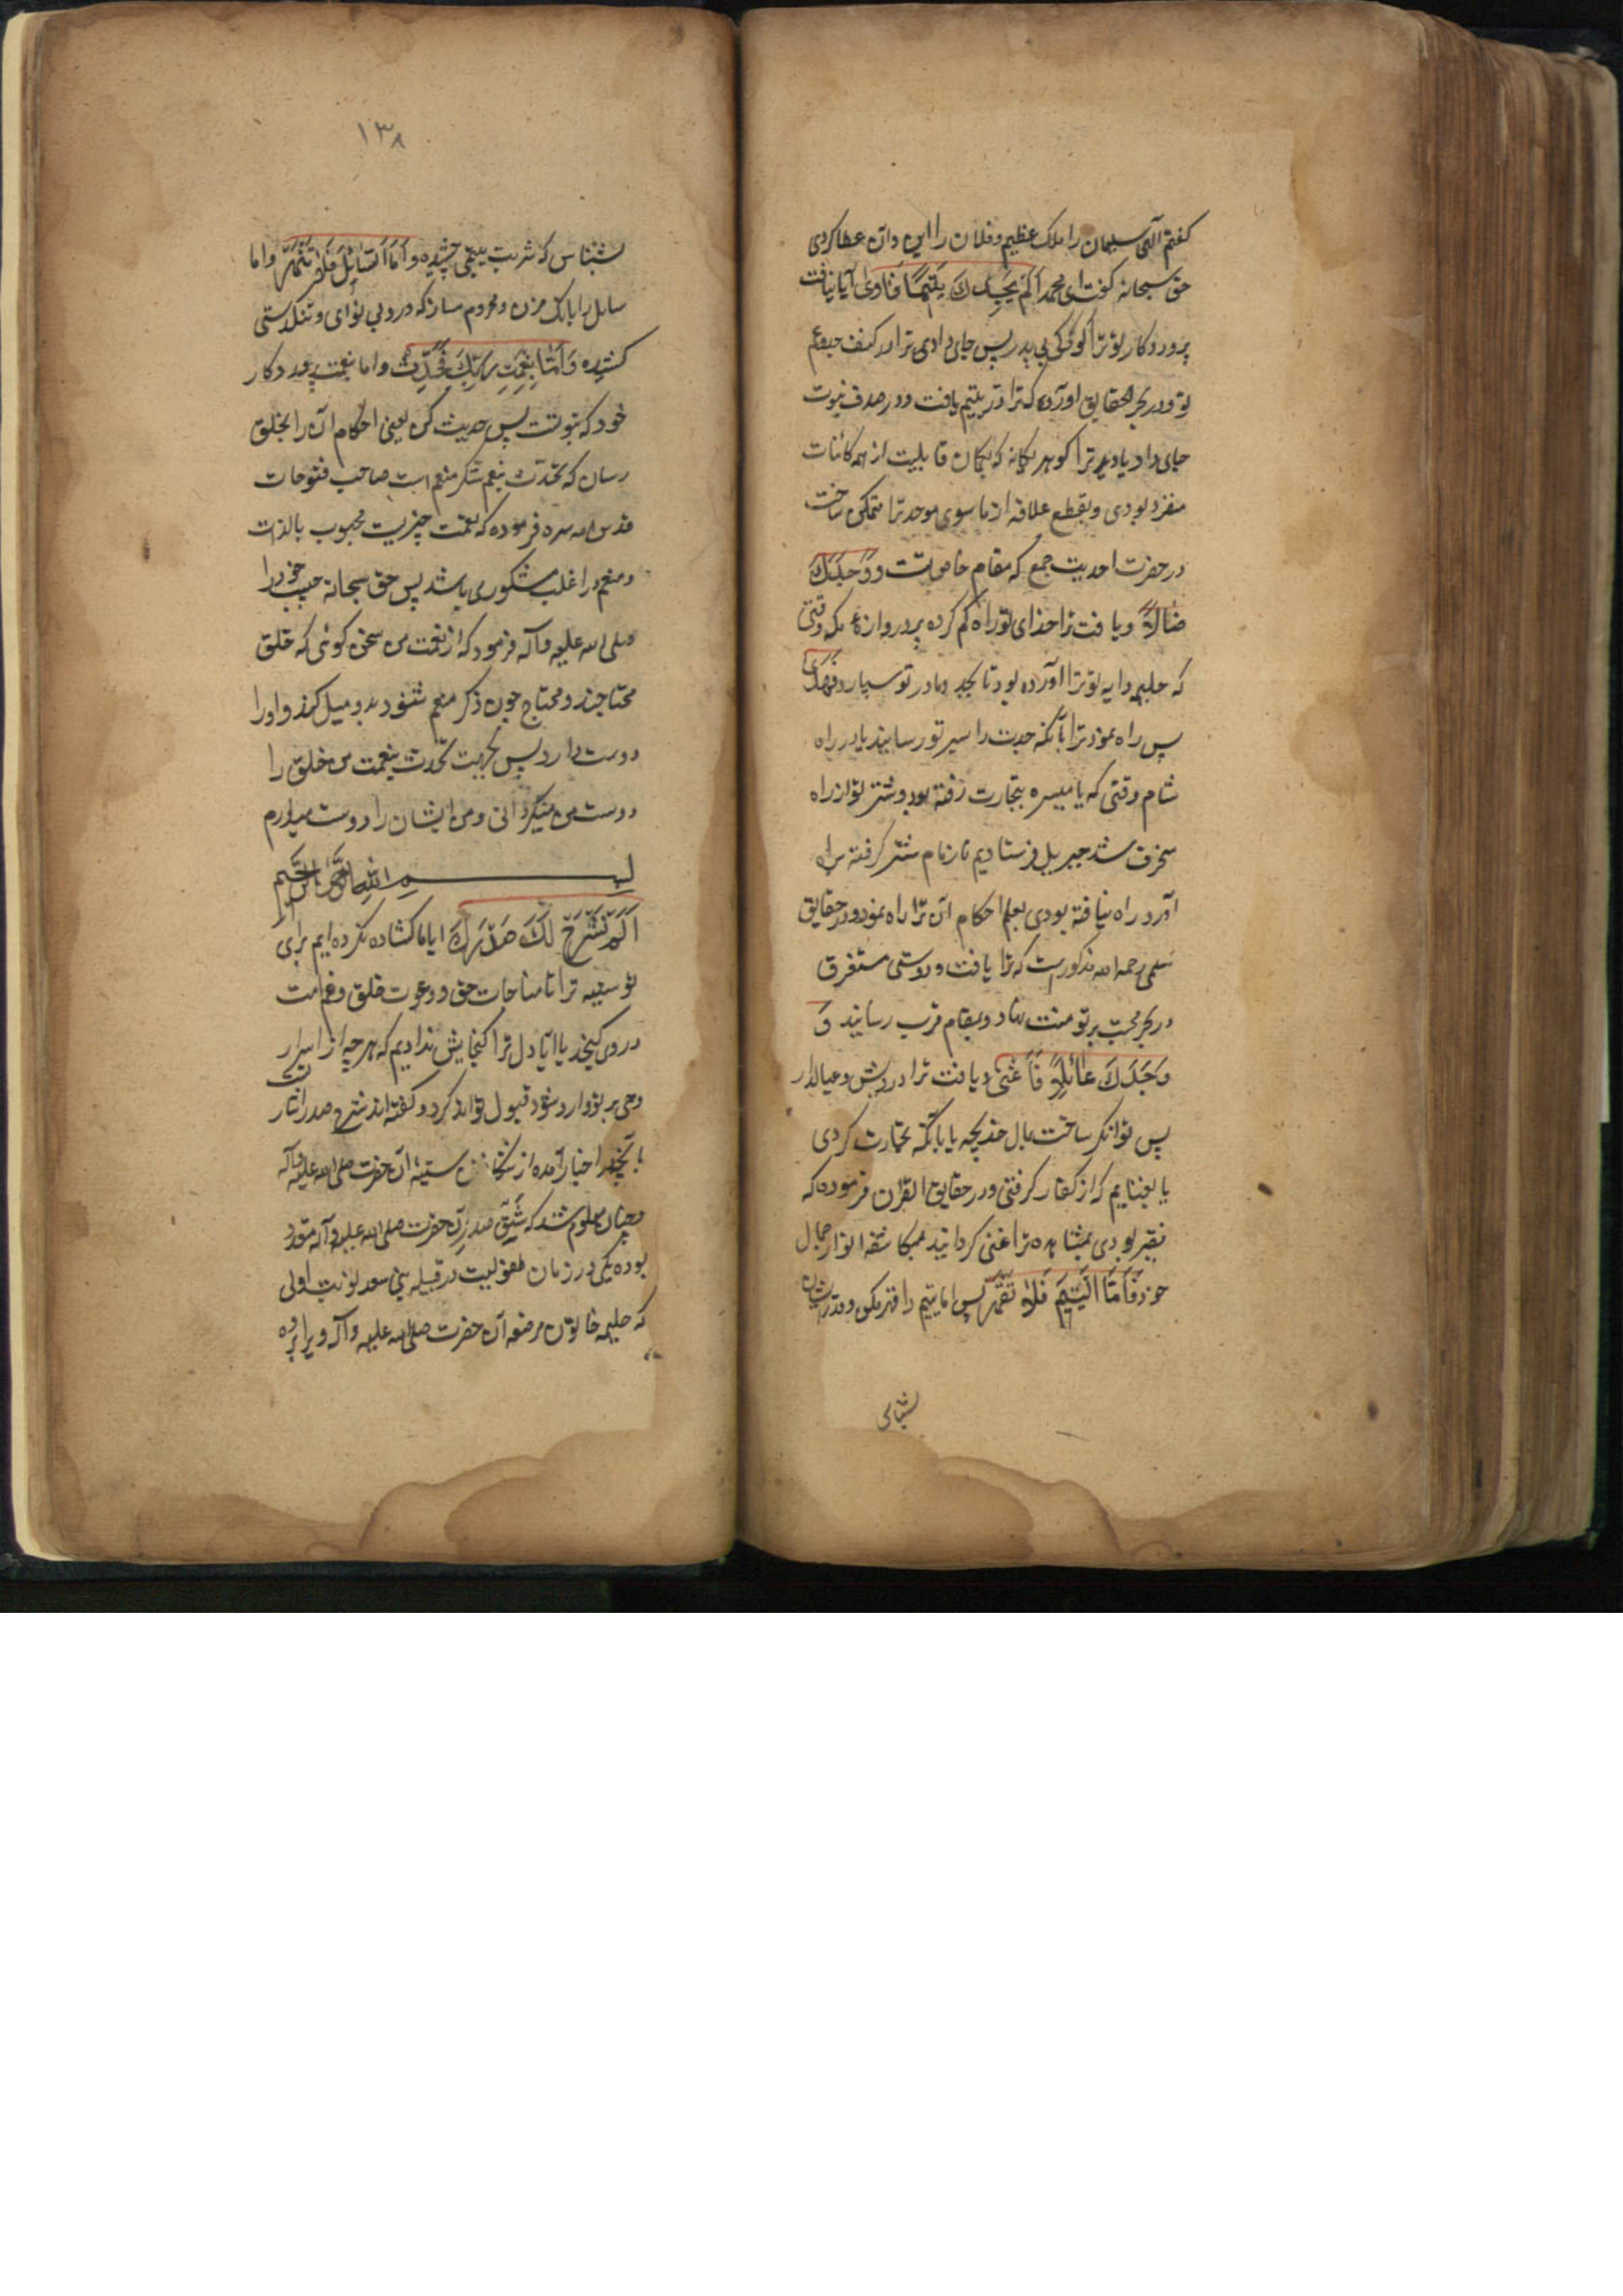 کفتم الهی سلیمان را ملک عظیم و فلان را این و آن عطا کردی
حق سبحانه کفت ای محمد اَلَمْ یَجِدْكَ یَتیمًا فَاوی آیا نیافت
پروردکار تو ترا کودکی بی پدر پس جای دادی ترا در کنف عم
تو و در بحر الحقایق آورده که ترا در یتیم یافت و در صدف نبوت
جای داد یا دید ترا کوهر یکانه که بکمان قابلیت از همه کائنات
منفرد بودی و بقطع علاقه از ما سوی موحد ترا متمکن ساخت
در حضرت احدیت جمع که مقام خاص تست وَوَجَدَكَ
ضَالًّا و یافت ترا خدای تو راه کم کرده بر دروازه مکه وقتی
که حلیمه دایه تو ترا آورده بود تا بجد و مادر تو سپارد فَهَدی
پس راه نمود ترا بآنکه جدت را بسر تو رسانید یا در راه
شام وقتی که با میسره بتجارت رفته بودی و شتر تو از راه
منحرف شد جبریل فرستادیم تا زمام شتر کرفته براه
آورد راه نیافته بودی بعلم احکام آن ترا راه نمود و در حقایق
سلمی رحمه الله مذکورست که ترا یافت و دوستی مستغرق
در بحر محبت بر تو منت نهاد و بمقام قرب رسانید وَ
وَجَدَكَ عَائِلًا فَاَغْنی و یافت ترا درویش و عیالدار
پس توانکر ساخت بمال خدیجه یا بآنکه تجارت کردی
یا بغنایم که از کفار کرفتی و در حقایق القرآن فرموده که
فقیر بودی بمشاهده ترا غنی کردانید بمکاشفه انوار جمال
خود فَاَمَّا الْیَتیمَ فَلَا تَقْهَرْ پس اما یتیم را قهر مکن و قدر ایشان
بشناس
۱۳۸
بشناس که شربت یتیمی چشیده وَاَمَّا السَّائِلَ فَلَا تَنْهَرْ و اما
سایل را بانک مزن و محروم مساز که درد بی نوای و تنکدستی
کشیده وَاَمَّا بِنِعْمَتِ رَبِّكَ فَحَدِّثْ و اما بنعمت پروردکار
خود که نبوتست پس حدیث کن یعنی احکام آن را بخلق
رسان که تحدث بنعم شکر منعم است صاحب فتوحات
قدس الله سره فرموده که نعمت چیزیست محبوب بالذات
و منعم را اغلب مشکوری باشد پس حق سبحانه حبیب خود را
صلی الله علیه و آله فرمود که از نعمت من سخن کوئی که خلق
محتاجند و محتاج چون ذکر منعم شنود بدو میل کند و او را
دوست دارد پس بجهت تحدث بنعمت من خلق را
دوست من میکردانی و من ایشان را دوست میدارم
بسم الله الرحمن الرحیم
اَلَمْ نَشْرَحْ لَكَ صَدْرَكَ ایا ما کشاده نکرده ایم برای
تو سینه ترا تا مناجات حق و دعوت خلق و غم امت
در وی کنجد یا ایا دل ترا کنجایش ندادیم که هر چه از اسرار
وحی بر تو وارد شود قبول توانی کرد و کفته اند شرح صدر اشارتست
بآنچه در اخبار آمده از شکافتن سینه آن حضرت صلی الله علیه و آله
و چنان معلوم شد که شق صدر آن حضرت صلی الله علیه و آله متعدد
بوده یکی در زمان طفولیت در قبیله بنی سعد نوبت اولی
که حلیمه خاتون مرضعه آن حضرت صلی الله علیه و آله ویرا برده